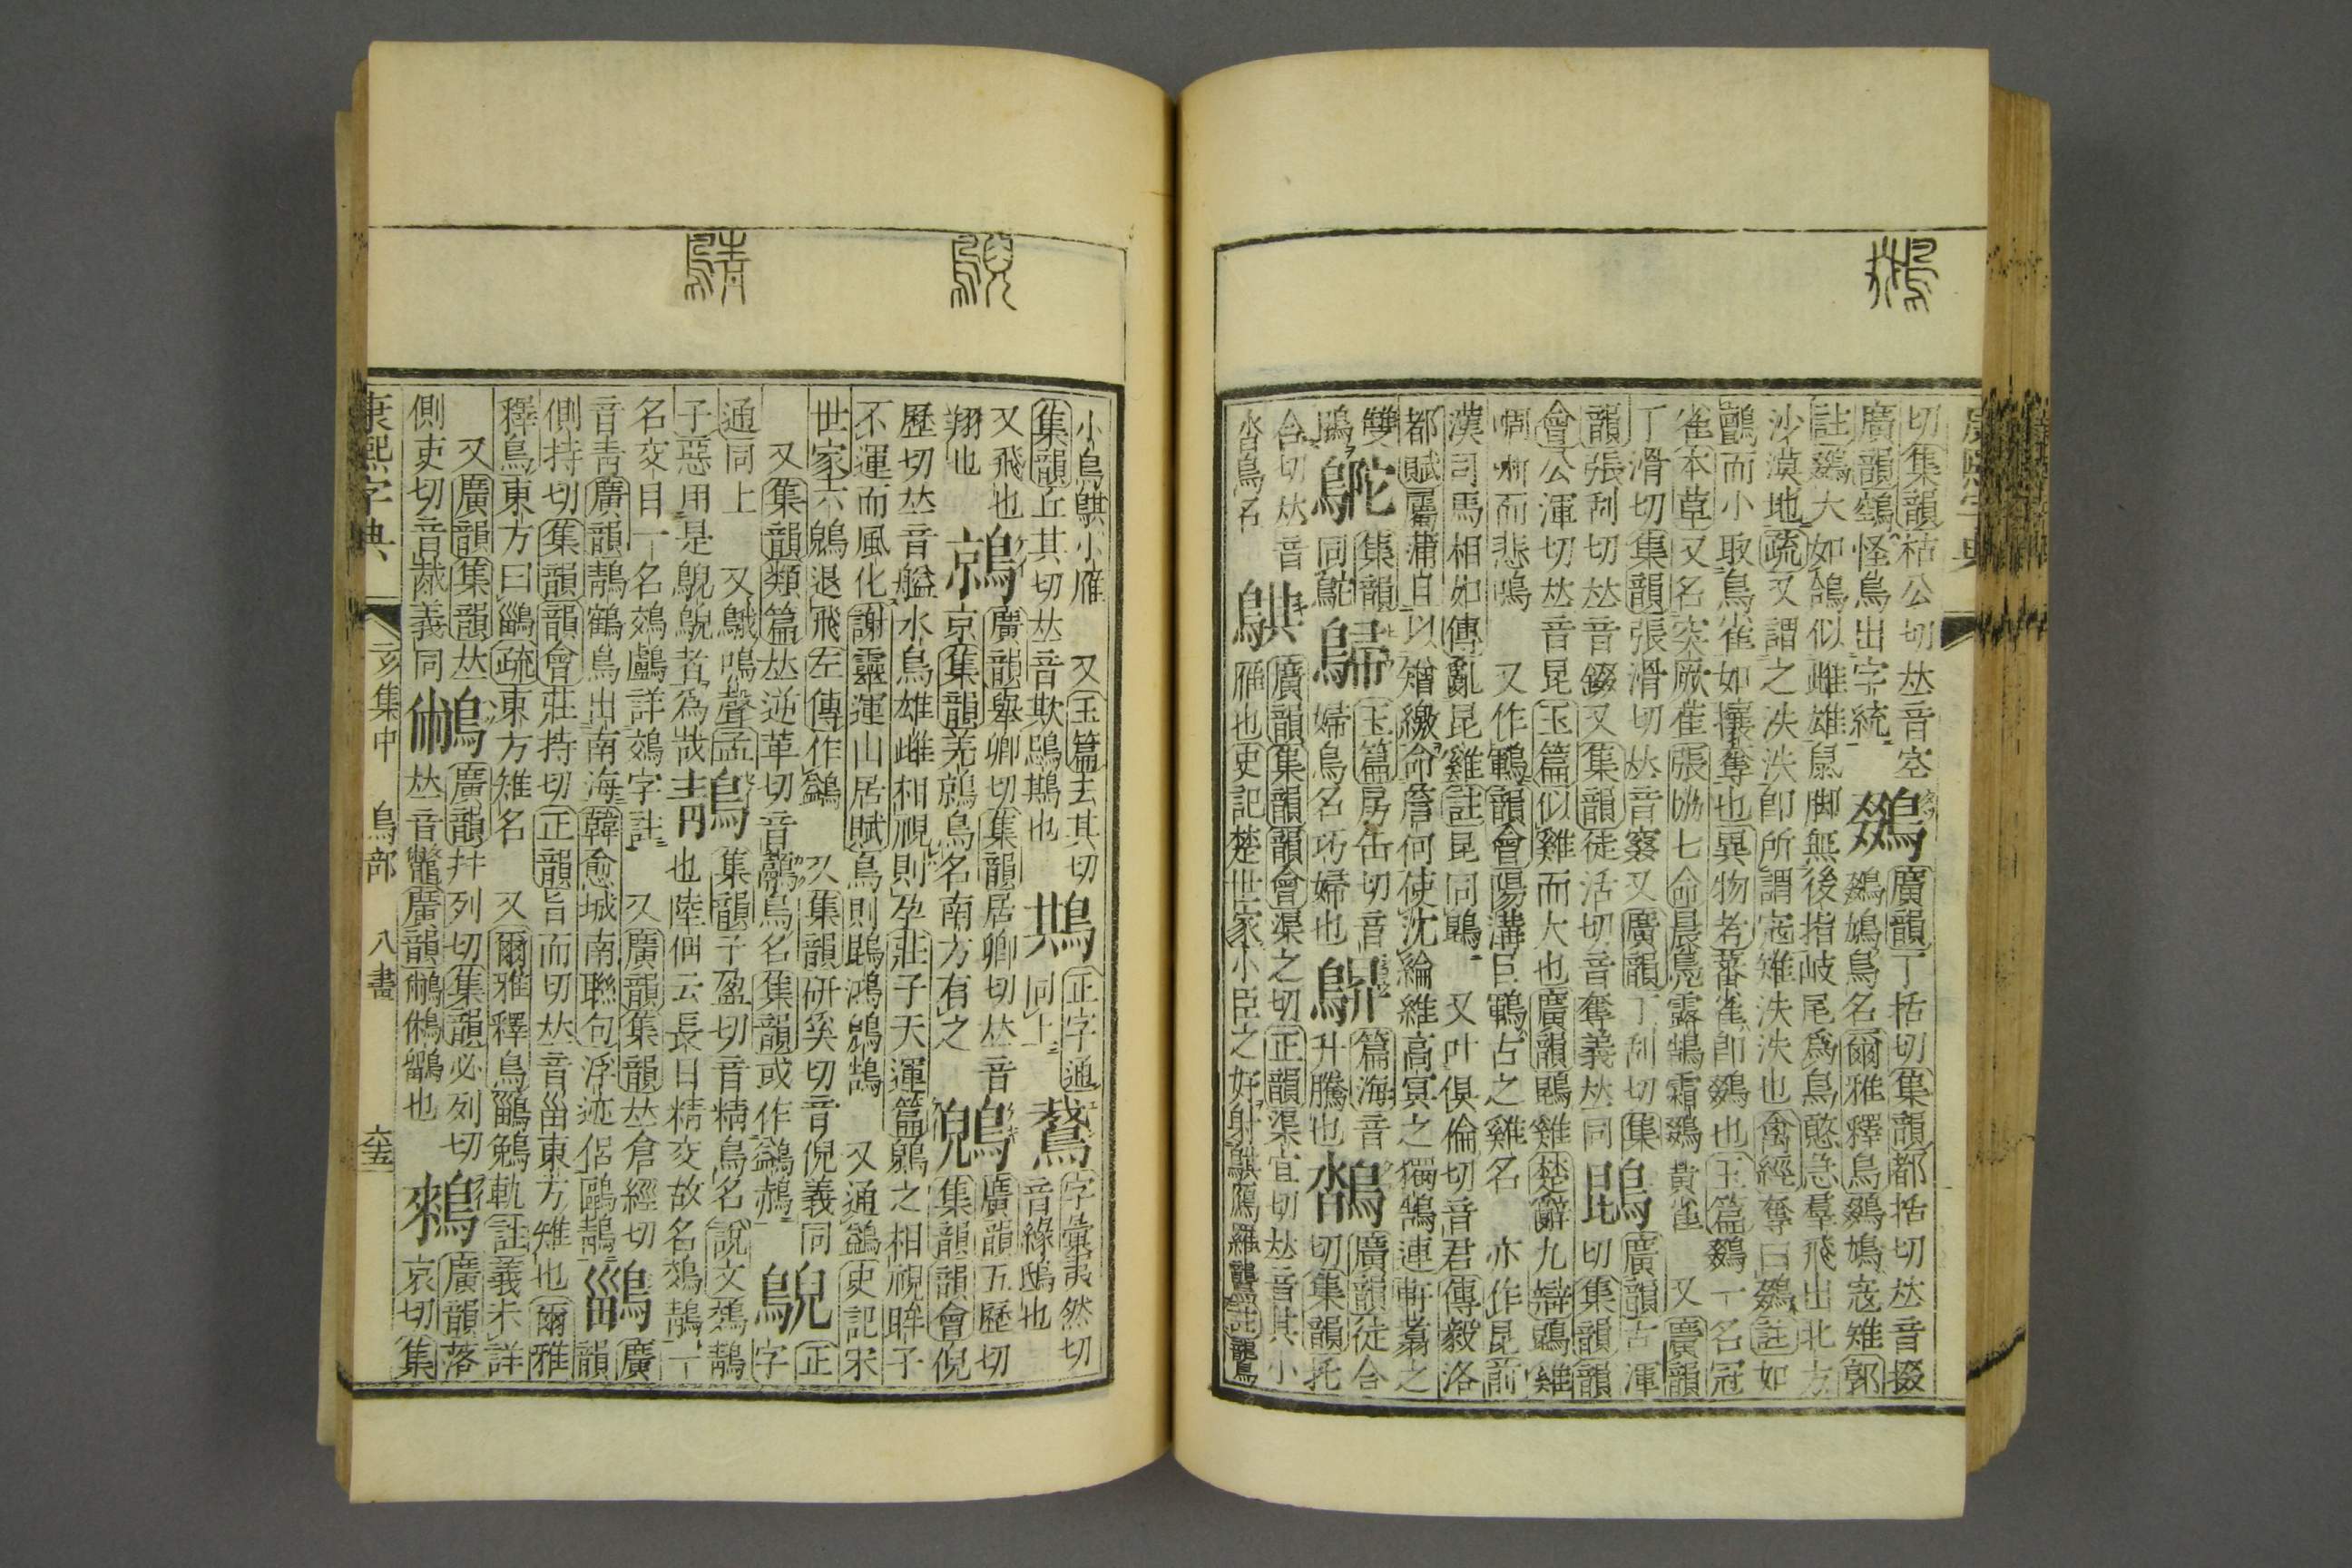 切集韻枯公切𠀤音空鵽廣韻丁括切集韻都括切𠀤音掇
廣韻鵼怪鳥出字統鵽鳩鳥名爾雅釋鳥鵽鳩寇雉郭
註鵽大如鴿似雌雉鼠脚無後指岐尾爲鳥憨急羣飛出北方
沙漠地疏又謂之泆泆卽所謂寇雉泆泆也禽經奪曰鵽註如
鸇而小取鳥雀如攘奪也異物考蕃雀卽鵽也玉篇鵽一名冠
雀本草又名突厥雀張協七命晨鳧露鵠霜鵽黃雀 又廣韻
丁滑切集韻張滑切𠀤音窡又廣韻丁刮切集
韻張刮切𠀤音錣又集韻徒活切音奪義𠀤同鵾廣韻古渾切集韻
會公渾切𠀤音昆玉篇似雞而大也廣韻鵾雞楚辭九辯鵾雞
啁哳而悲鳴 又作鶤韻會陽溝巨鶤古之雞名 亦作昆前
漢司馬相如傳亂昆雞註昆同鵾 又叶俱倫切音君傅毅洛
都賦屬蒲且以矰繳命詹何使沈綸維高冥之獨鵠連軒翥之
雙鵾
集韻同鴕
玉篇房缶切音婦鳥名巧婦也
篇海音升騰也
廣韻徒合切集韻托合切𠀤音沓鳥名
鶀廣韻集韻韻會渠之切正韻渠宜切𠀤音其小
雁也史記楚世家小臣之好射鶀鴈羅鸗註鸗
小鳥鶀小雁 又玉篇去其切
集韻丘其切𠀤音欺鵋鶀也
又飛也
翔也
鶁廣韻舉卿切集韻居卿切𠀤音京集韻羌鶁鳥名南方有之
鶂廣韻五歷切集韻韻會倪
歷切𠀤音艗水鳥雄雌相視則孕莊子天運篇鶂之相視眸子
不運而風化謝靈運山居賦鳥則鵾鴻鶂鵠 又通鷁史記宋
世家六鶂退飛左傳作鷁 又集韻硏奚切音倪義同
又集韻類篇𠀤逆革切音鷊鳥名集韻或作鷁鷊
鶃字正
通同上 又鵝鳴聲孟
子惡用是鶃鶃者爲哉鶄集韻子盈切音精鳥名說文鵁鶄
也陸佃云長目精交故名鵁鶄一
名交目一名鵁鸕詳鵁字註 又廣韻集韻𠀤倉經切
音靑廣韻鶄鶴鳥出南海韓愈城南聯句浮迹侶鷗鶄鶅廣韻
側持切集韻韻會莊持切正韻旨而切𠀤音甾東方雉也爾雅
釋鳥東方曰鶅疏東方雉名 又爾雅釋鳥鶅鶨軌註義未詳
又廣韻集韻𠀤
側吏切音胾義同
廣韻幷列切集韻必列切
𠀤音鼈廣韻
鶆廣韻落哀切集
康熙字典 亥集中 鳥部 八畫 六五